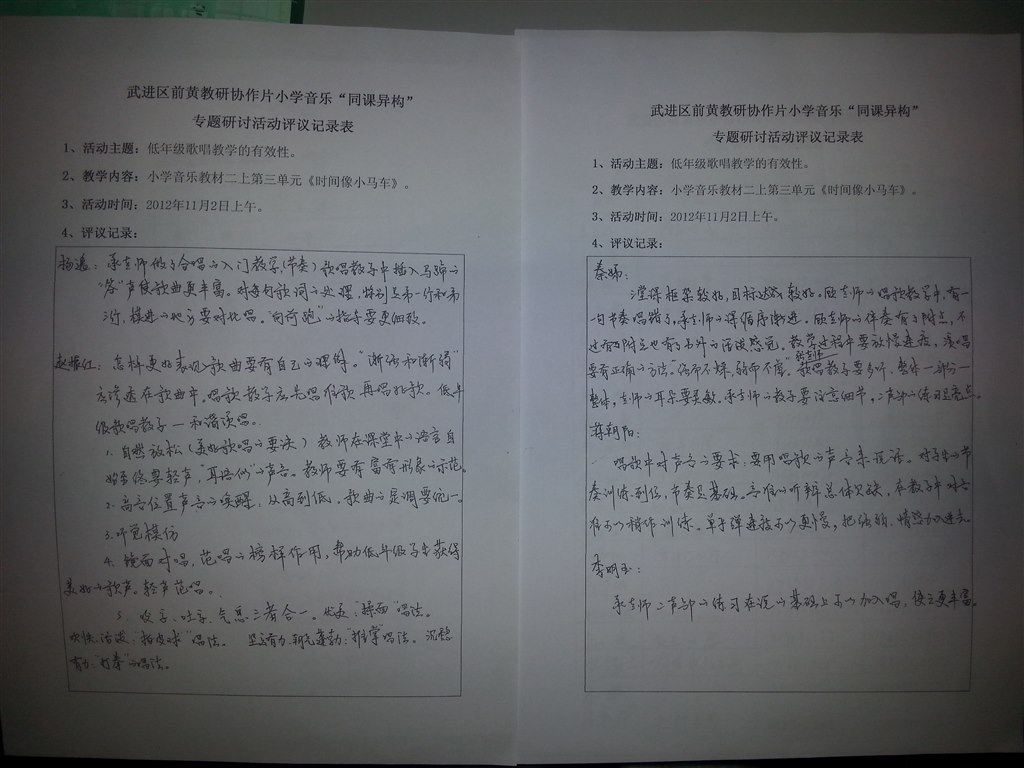 武进区前黄教研协作片小学音乐“同课异构”
专题研讨活动评议记录表
1、活动主题：低年级歌唱教学的有效性。
2、教学内容：小学音乐教材二上第三单元《时间像小马车》。
3、活动时间：2012年11月2日上午。
4、评议记录：
承老师做了合唱的入门教学(节奏)歌唱教学中插入马蹄的
声使歌曲更丰富。对每句歌词的处理，特别是
模进的地方要对比唱。的指导要更细致。
赵振红：怎样更好表现歌曲要有自己的理解。“渐强和渐弱”
渗透在歌曲中。唱歌教学应先唱准歌再唱好歌。低年
级歌唱教学—和谐
1. 自然放松(美好歌唱的要诀)教师在课堂中的语言自
始至终要轻声“耳语似”的声音。教师要有富有形象的示范。
2. 高音位置声音的唤醒：从高到低，歌曲的要统一。
3. 听觉模仿
4. 镜面对唱，范唱的榜样作用，帮助低年级学生获得
美好的歌声。轻声范唱。
5. 咬字、吐字、气息三者合一。“唱法。
欢快活泼：“拍皮球”唱法。坚定有力、朝气蓬勃：唱法。沉稳
有力：“打拳”的唱法。
武进区前黄教研协作片小学音乐“同课异构”
专题研讨活动评议记录表
1、活动主题：低年级歌唱教学的有效性。
2、教学内容：小学音乐教材二上第三单元《时间像小马车》。
3、活动时间：2012年11月2日上午。
4、评议记录：
秦娇：
课框架较好，目标达成较好。顾老师的唱歌教学中，有一
句节奏唱错了，承老师的课循序渐进。顾老师的伴奏有了附点，不
过有附点也有了的活泼感觉。教学过程中要放慢速度，演唱
要有正确的方法。歌唱教学要多听，整体—部分—
整体，老师的耳朵要灵敏。承老师的教学要注意细节，二声部的练习是亮点。
蒋朝阳：
唱歌中对声音的要求：要用唱歌的声音来说话。对学生的节
奏训练到位，节奏是基础。音准的听辨总体欠缺，在教学中
有可以稍作训练。单手弹连接可以更慢，把情绪加进去。
李明玉：
承老师二声部的练习在说的基础上可以加入唱，使之更丰富。